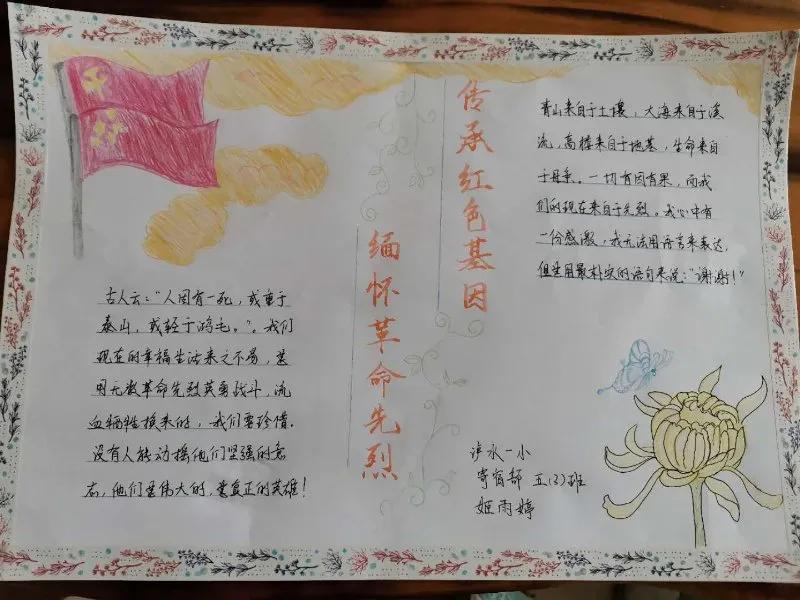 传承红色基因
缅怀革命先烈
古人云:"人固有一死,或重于
泰山,或轻于鸿毛。"。我们
现在的幸福生活来之不易,是
用无数革命先烈英勇战斗,流
血牺牲换来的,我们要珍惜.
没有人能动摇他们坚强的意
志,他们是伟大的,是真正的英雄!
青山来自于土壤,大海来自于溪
流,高楼来自于地基,生命来自
于母乘。一切有因有果,而我
们的现在来自于先烈。我心中有
一份感激,我无法用语言来表达,
但生用最朴实的语句来说:"谢谢!"
泸水一小
寄宿部 五(3)班
姬雨婷